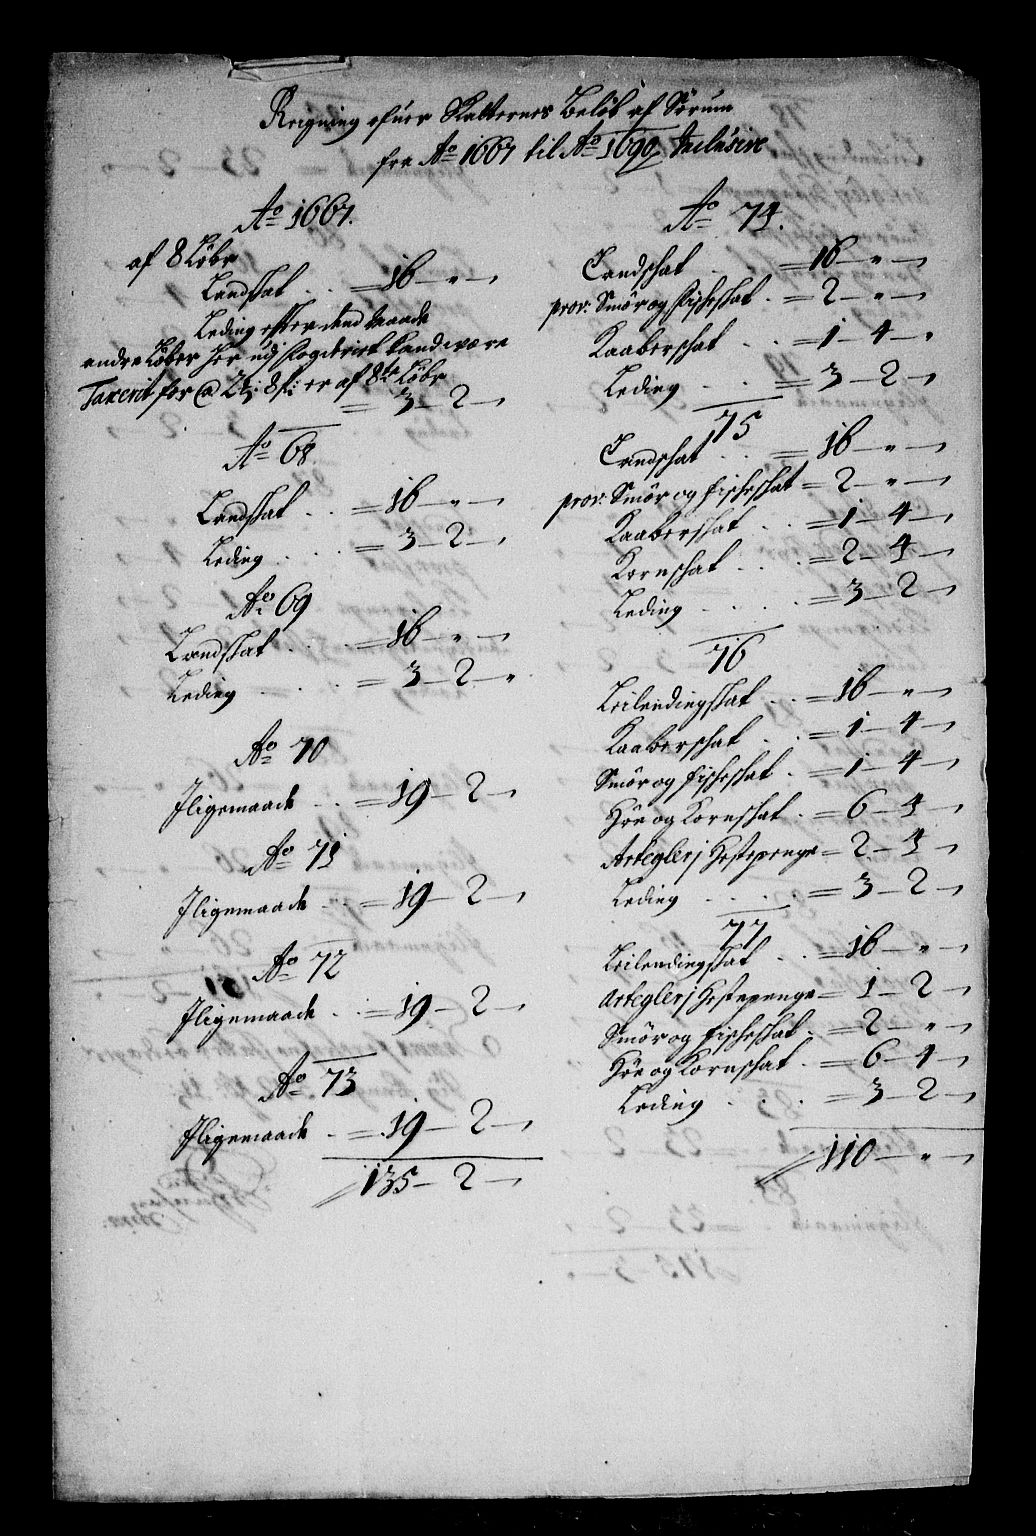 Reigning ofuer Skatternes Beløb af Sørum
fra Ao 1667 til Ao 1690 Inclusive
Ao 1667.
af 8 Løbr
Landskat . . = 16 — „ —
Leding effter dend maade
andre Løber her udj Fogderiet kand være
Taxerit for @ 2 8 s: er af 8te Løbr
= 3 — 2 —
Ao 68.
Landskat . . = 16 — „ —
Leding . . . . = 3 — 2 —
Ao 69
Landskat . . . = 16 — „ —
Leding . . . . = 3 — 2 — „
Ao 70
Jligemaade . . = 19 — 2 —
Ao 71
Jligemaade . . = 19 — 2 —
Ao 72
Jligemaade . . = 19 — 2 —
Ao 73
Jligemaade . = 19 — 2 —
135 — 2 —
Ao 74.
Landschat . . = 16 — „ —
prov: Smør og Fischeskat . = 2 — „ —
Kaaberschat . . = 1 — 4 — „
Leding . . . = 3 — 2 —
75
Landschat . . . = 16 — „ —
prov: Smør og fischeskat = 2 — „ —
Kaaberschat . . = 1 — 4 —
Kornschat . . = 2 — 4 —
Leding . . . . = 3 — 2 —
76
Leilendingskat . . = 16 — „ —
Kaaberschat . = 1 — 4 —
Smør og fischeskat . = 1 — 4 —
Høe og Kornschat . = 6 — 4 —
Arteglerj Hestepenge — 2 — 4 —
Leding . . . . = 3 — 2 —
77
Leilendingskat . . = 16 — „ —
Arteglerj Hestepenge = 1 — 2 —
Smør og fischeskat . = 2 — „ —
Høe og Kornschat . = 6 — 4 —
Leding . . . . = 3 — 2 —
110 — „ —